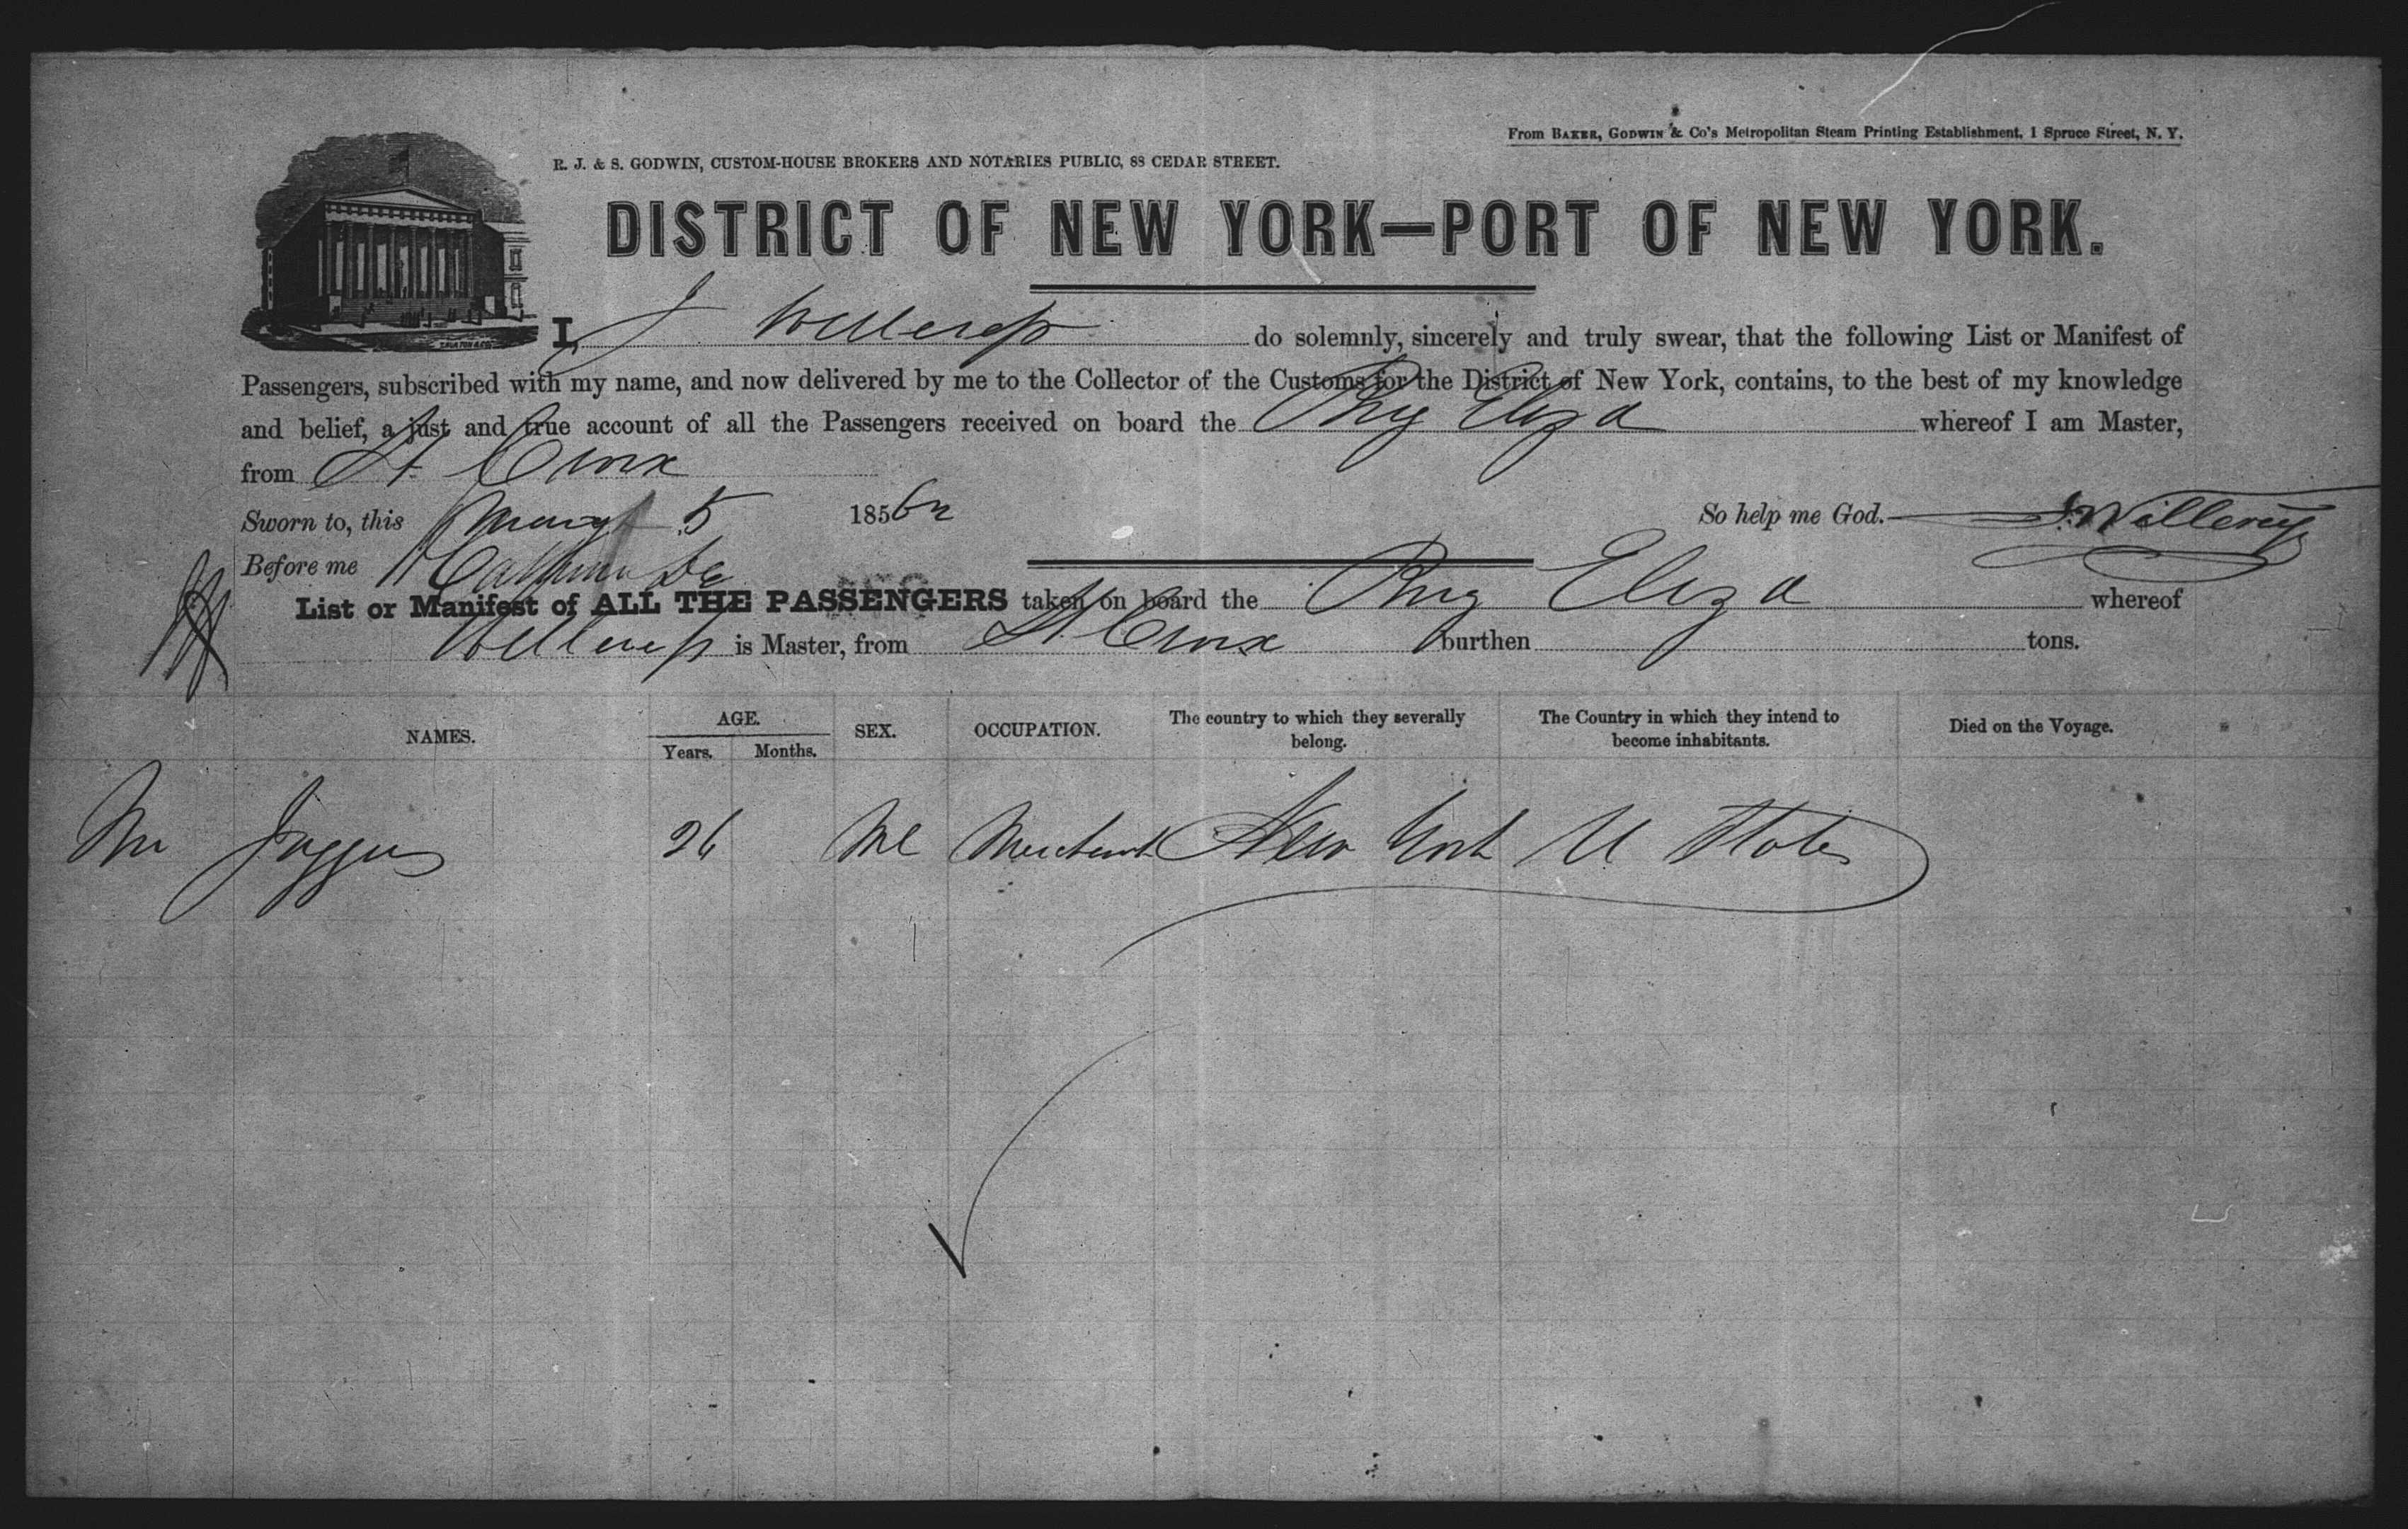 From BAKER, GODWIN & Co's Metropolitan Steam Printing Establishment, 1 Spruce Street, N. Y.
R. J. & S. GODWIN, CUSTOM-HOUSE BROKERS AND NOTARIES PUBLIC, 88 CEDAR STREET.
DISTRICT OF NEW YORK—PORT OF NEW YORK.
I, J Willerup do solemnly, sincerely and truly swear, that the following List or Manifest of
Passengers, subscribed with my name, and now delivered by me to the Collector of the Customs for the District of New York, contains, to the best of my knowledge
and belief, a just and true account of all the Passengers received on board the Brig Eliza whereof I am Master,
from St Croix
Sworn to, this 5 18562 So help me God. J. Willerup
Before me
List or Manifest of ALL THE PASSENGERS taken on board the Brig Eliza whereof
Willerup is Master, from St Croix burthen tons.
NAMES. AGE. SEX. OCCUPATION. The country to which they severally belong. The Country in which they intend to become inhabitants. Died on the Voyage.
Years. Months.
Mr 26 Ml Merchant New York U States